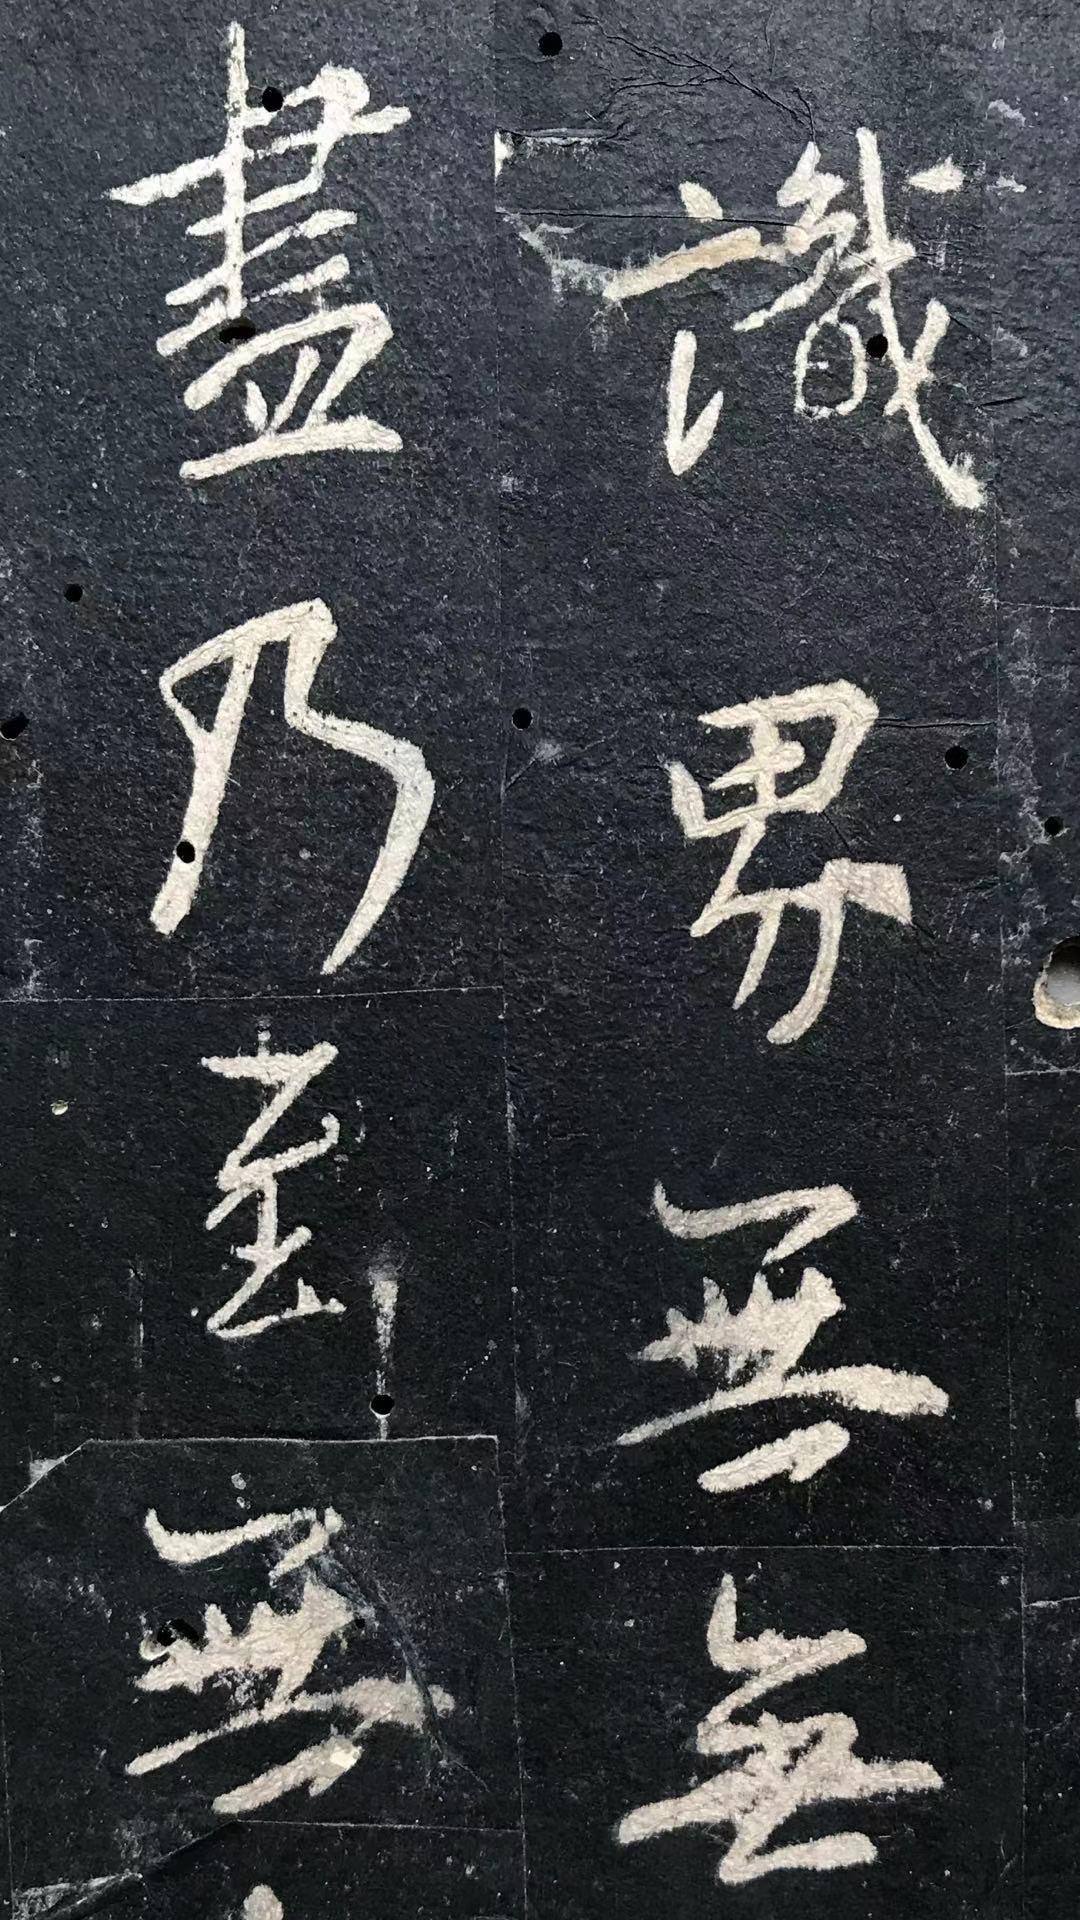 識界無無
盡乃至無